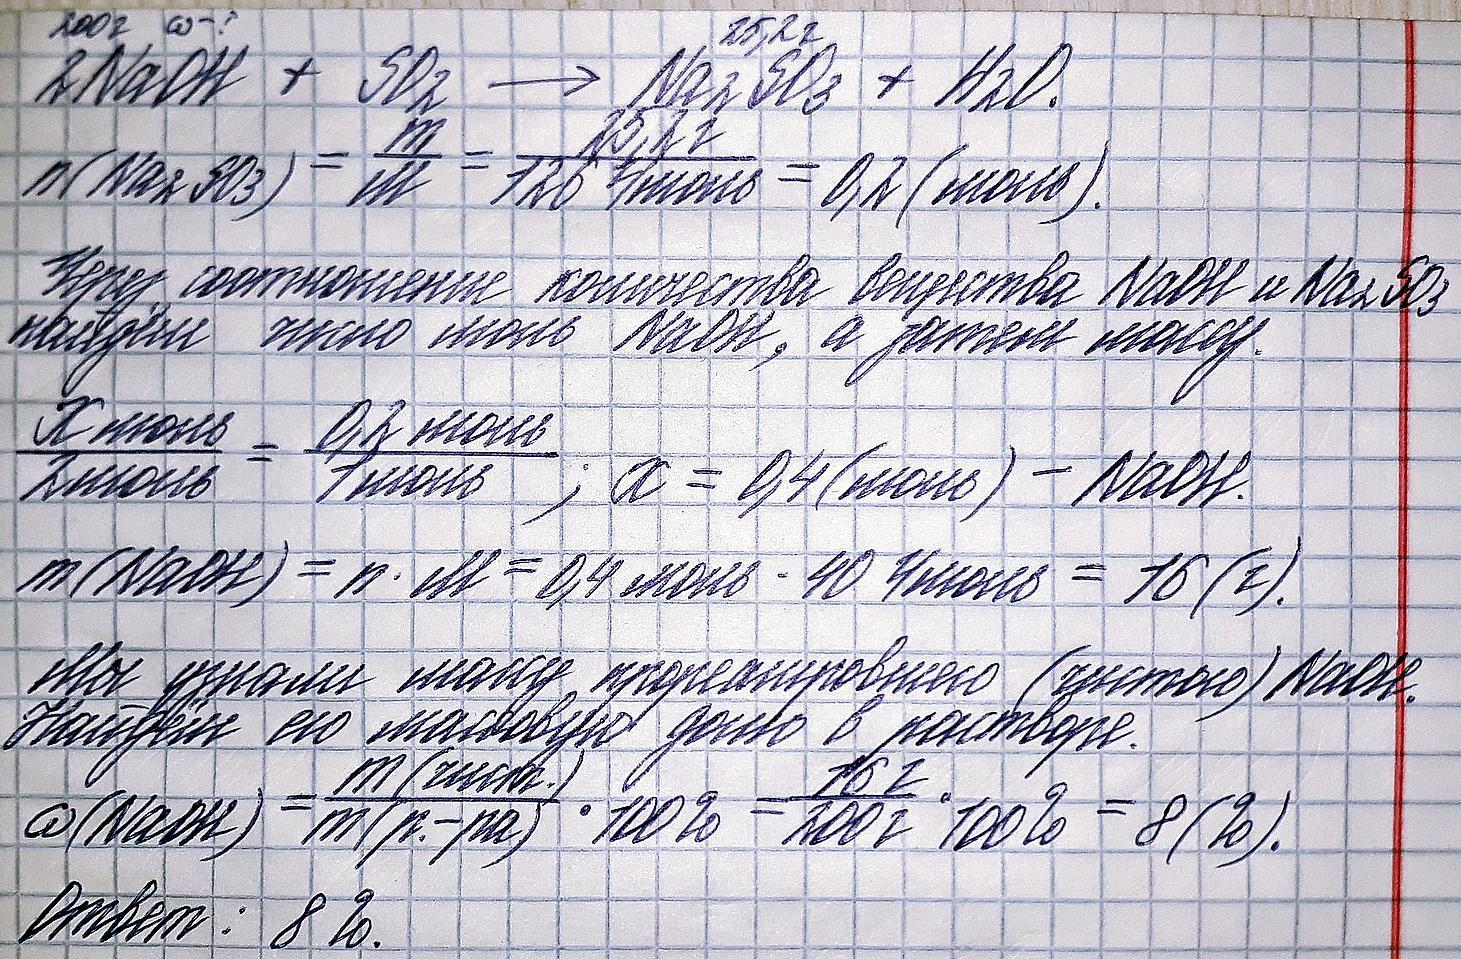 200г ω-?
25,2г
2NaOH + SO2 → Na2SO3 + H2O.
n(Na2SO3) = m/M = 25,2г/126 г/моль = 0,2 (моль).
Через соотношение количества вещества NaOH и Na2SO3
найдём число моль NaOH, а затем массу.
X моль/2 моль = 0,2 моль/1 моль ; x = 0,4 (моль) – NaOH.
m(NaOH) = n · M = 0,4 моль · 40 г/моль = 16 (г).
Мы узнали массу прореагировавшего (чистого) NaOH.
Найдём его массовую долю в растворе.
ω(NaOH) = m(чист.)/m(р.-ра) · 100% = 16 г/200 г · 100% = 8 (%).
Ответ: 8 %.